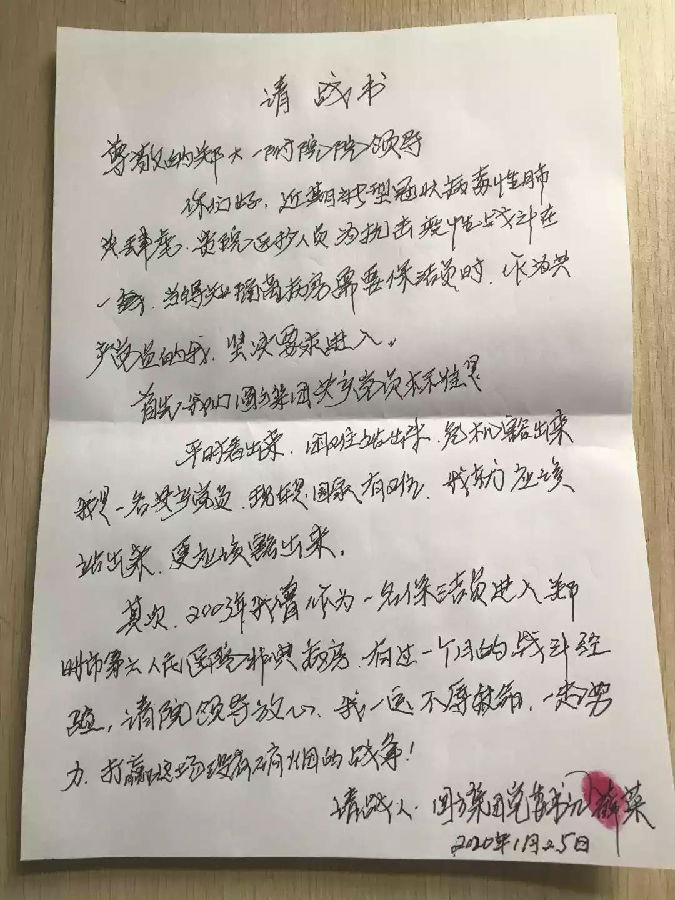 请战书
尊敬的郑大一附院院领导
你们好，近期新型冠状病毒性肺
炎肆虐，贵院医护人员为抗击疫情战斗在
一线，当得知隔离病房需要保洁员时，作为共
产党员的我，坚决要求进入。
首先，我们圆方集团共产党员标准是
平时看出来，困难站出来，危机豁出来
我是一名共产党员，现在是国家有难，我就应该
站出来，更应该豁出来。
其次，2003年我曾作为一名保洁员进入郑
州市第六人民医院非典病房，有过一个月的战斗经
验，请院领导放心，我一定不辱使命，一起努
力，打赢这场没有硝烟的战争！
请战人：圆方集团党委书记薛荣
2020年1月25日